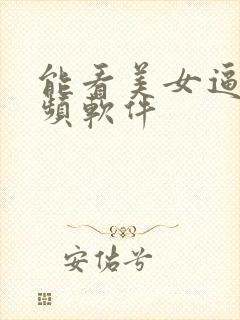 能看美女逼
頻軟件
安佑兮